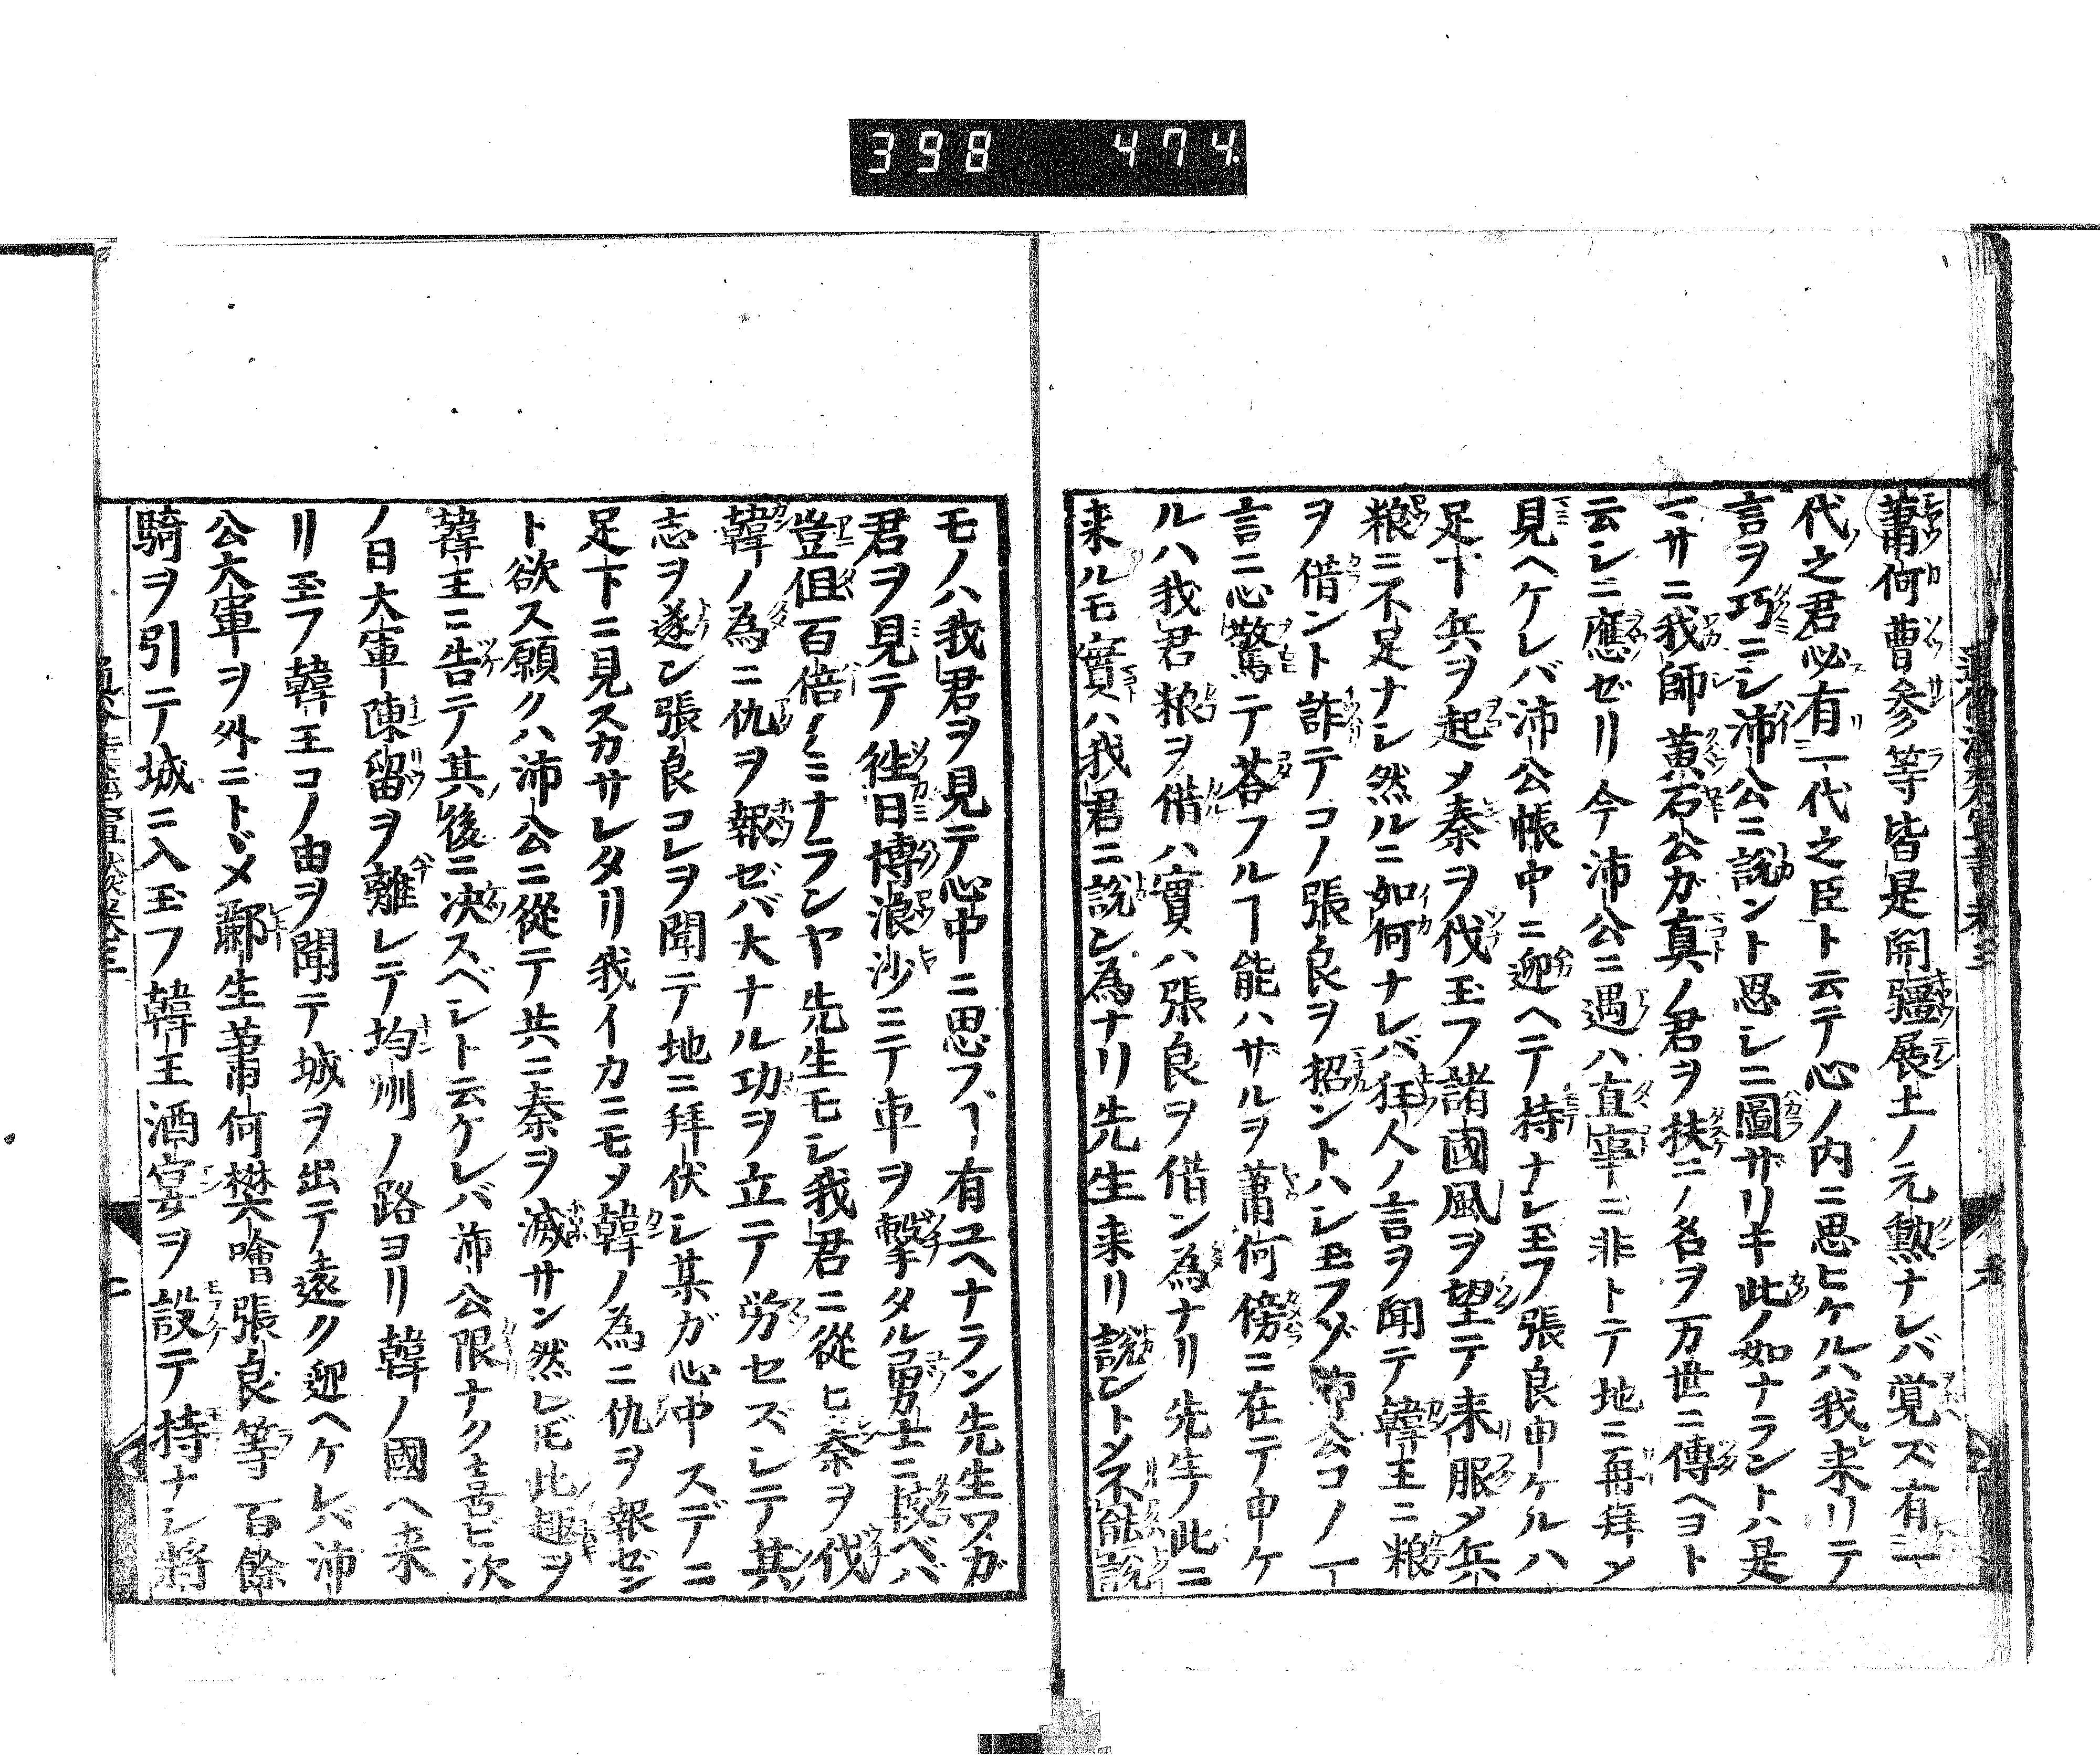 398 474.
蕭何曹参等皆是開疆展土ノ元勲ナレバ覚ズ有一
代之君必有一代之臣ト云テ心ノ内ニ思ヒケルハ我来リテ
言ヲ巧ニシ沛公ニ説ント思シニ圖ザリキ此ノ如ナラントハ是
マサニ我師黄石公ガ真ノ君ヲ扶ニノ名ヲ万世ニ傳ヘヨト
云シニ應ゼリ今沛公ニ遇ハ直事ニ非トテ地ニ再拝メ
見ヘケレバ沛公帳中ニ迎ヘテ持ナシ玉フ張良申ケルハ
足下兵ヲ起メ秦ヲ伐玉フ諸國風ヲ望テ来服メ兵
粮ニ不足ナシ然ルニ如何ナレバ狂人ノ言ヲ聞テ韓王ニ粮
ヲ借ント詐テコノ張良ヲ招ントハシ玉フゾ沛公コノ一
言ニ心驚テ荅フルヿ能ハサルヲ蕭何傍ニ在テ申ケ
ルハ我君粮ヲ借ハ實ハ張良ヲ借ン為ナリ先生ノ此ニ
来ルモ實ハ我君ニ説ン為ナリ先生来リ説ントメ不能説
モノハ我君ヲ見テ心中ニ思フヿ有ユヘナラン先生ワガ
君ヲ見テ徃日博浪沙ニテ車ヲ撃タル勇士ニ挍ベバ
豈但百倍ノミナランヤ先生モシ我君ニ從ヒ秦ヲ伐
韓ノ為ニ仇ヲ報ゼバ大ナル功ヲ立テ労セズシテ其
志ヲ遂ン張良コレヲ聞テ地ニ拜伏シ某ガ心中スデニ
足下ニ見スカサレタリ我イカニモメ韓ノ為ニ仇ヲ報ゼン
ト欲ス願クハ沛公ニ從テ共ニ秦ヲ滅サン然レ𪜈此趣ヲ
韓王ニ告テ其後ニ决スベシト云ケレバ沛公限ナク喜ヒ次
ノ日大軍陳留ヲ離レテ均州ノ路ヨリ韓ノ國ヘ来
リ玉フ韓王コノ由ヲ聞テ城ヲ出テ遠ク迎ヘケレバ沛
公大軍ヲ外ニトヾメ酈生蕭何樊噲張良等百餘
騎ヲ引テ城ニ入玉フ韓王酒宴ヲ設テ持ナシ將